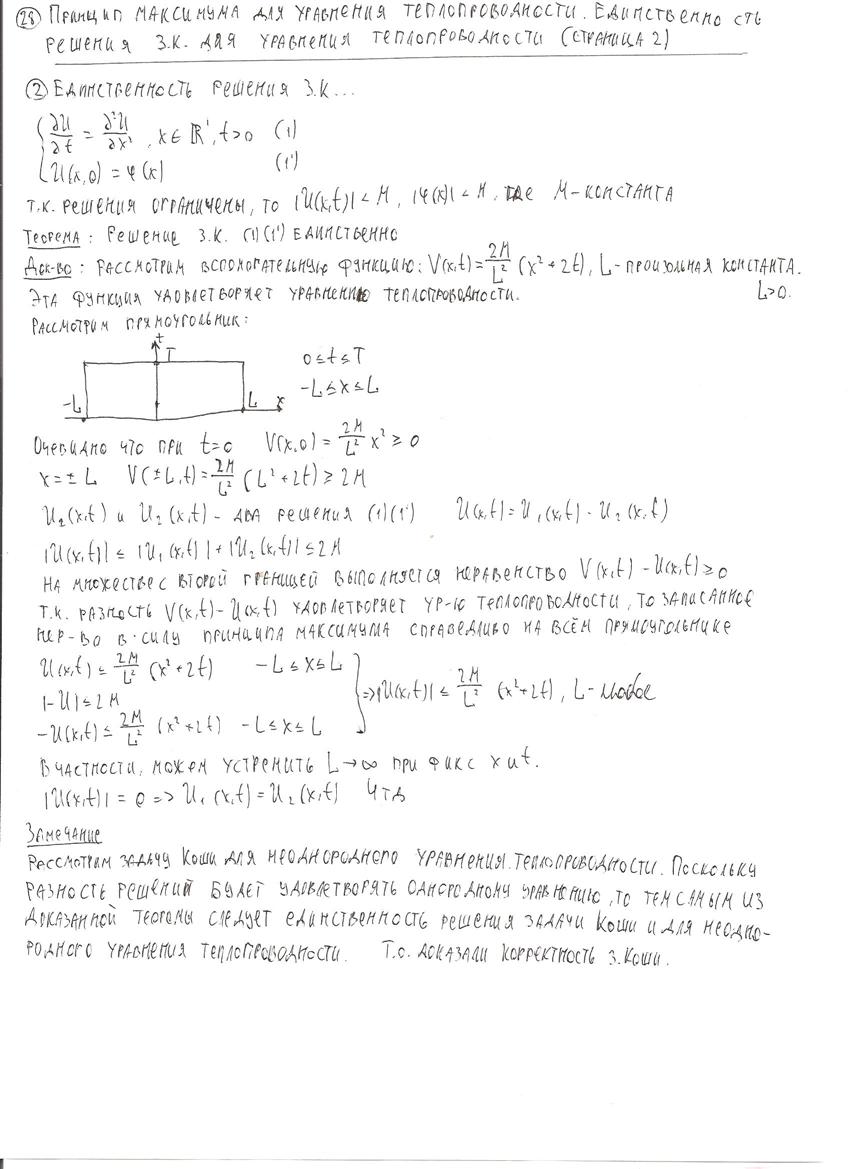 (28) Принцип максимума для уравнения теплопроводности. Единственность
решения З.К. для уравнения теплопроводности (страница 2)
(2) Единственность решения З.К...
{ ∂U/∂t = ∂²U/∂x², x ∈ ℝ¹, t>0 (1)
U(x,0) = φ(x) (1')
т.к. решения ограничены, то |U(x,t)| < M, |φ(x)| < M, где M-константа
Теорема: Решение З.К. (1)(1') единственно
Док-во: рассмотрим вспомогательную функцию: V(x,t) = 2M/L² (x²+2t), L-произольная константа.
Эта функция удовлетворяет уравнению теплопроводности. L>0.
Рассмотрим прямоугольник:
t
T
0 ≤ t ≤ T
-L L x
-L ≤ x ≤ L
Очевидно что при t=0 V(x,0) = 2M/L² x² ≥ 0
x = ± L V(±L,t) = 2M/L² (L²+2t) ≥ 2M
U₂(x,t) и U₂(x,t) - два решения (1)(1') U(x,t) = U₁(x,t) - U₂(x,t)
|U(x,t)| ≤ |U₁(x,t)| + |U₂(x,t)| ≤ 2M
На множестве с второй границей выполняется неравенство V(x,t) - U(x,t) ≥ 0
т.к. разность V(x,t) - U(x,t) удовлетворяет ур-ю теплопроводности, то записанное
нер-во в силу принципа максимума справедливо на всём прямоугольнике
U(x,t) ≤ 2M/L² (x²+2t) -L ≤ x ≤ L
|-U| ≤ 2M } => |U(x,t)| ≤ 2M/L² (x²+2t), L-любое
-U(x,t) ≤ 2M/L² (x²+2t) -L ≤ x ≤ L
В частности, можем устремить L→∞ при фикс x и t.
|U(x,t)| = 0 => U₁(x,t) = U₂(x,t) ЧТД
Замечание
Рассмотрим задачу Коши для неоднородного уравнения теплопроводности. Поскольку
разность решений будет удовлетворять однородному уравнению, то тем самым из
доказанной теоремы следует единственность решения задачи Коши и для неодно-
родного уравнения теплопроводности. Т.о. доказали корректность з. Коши.